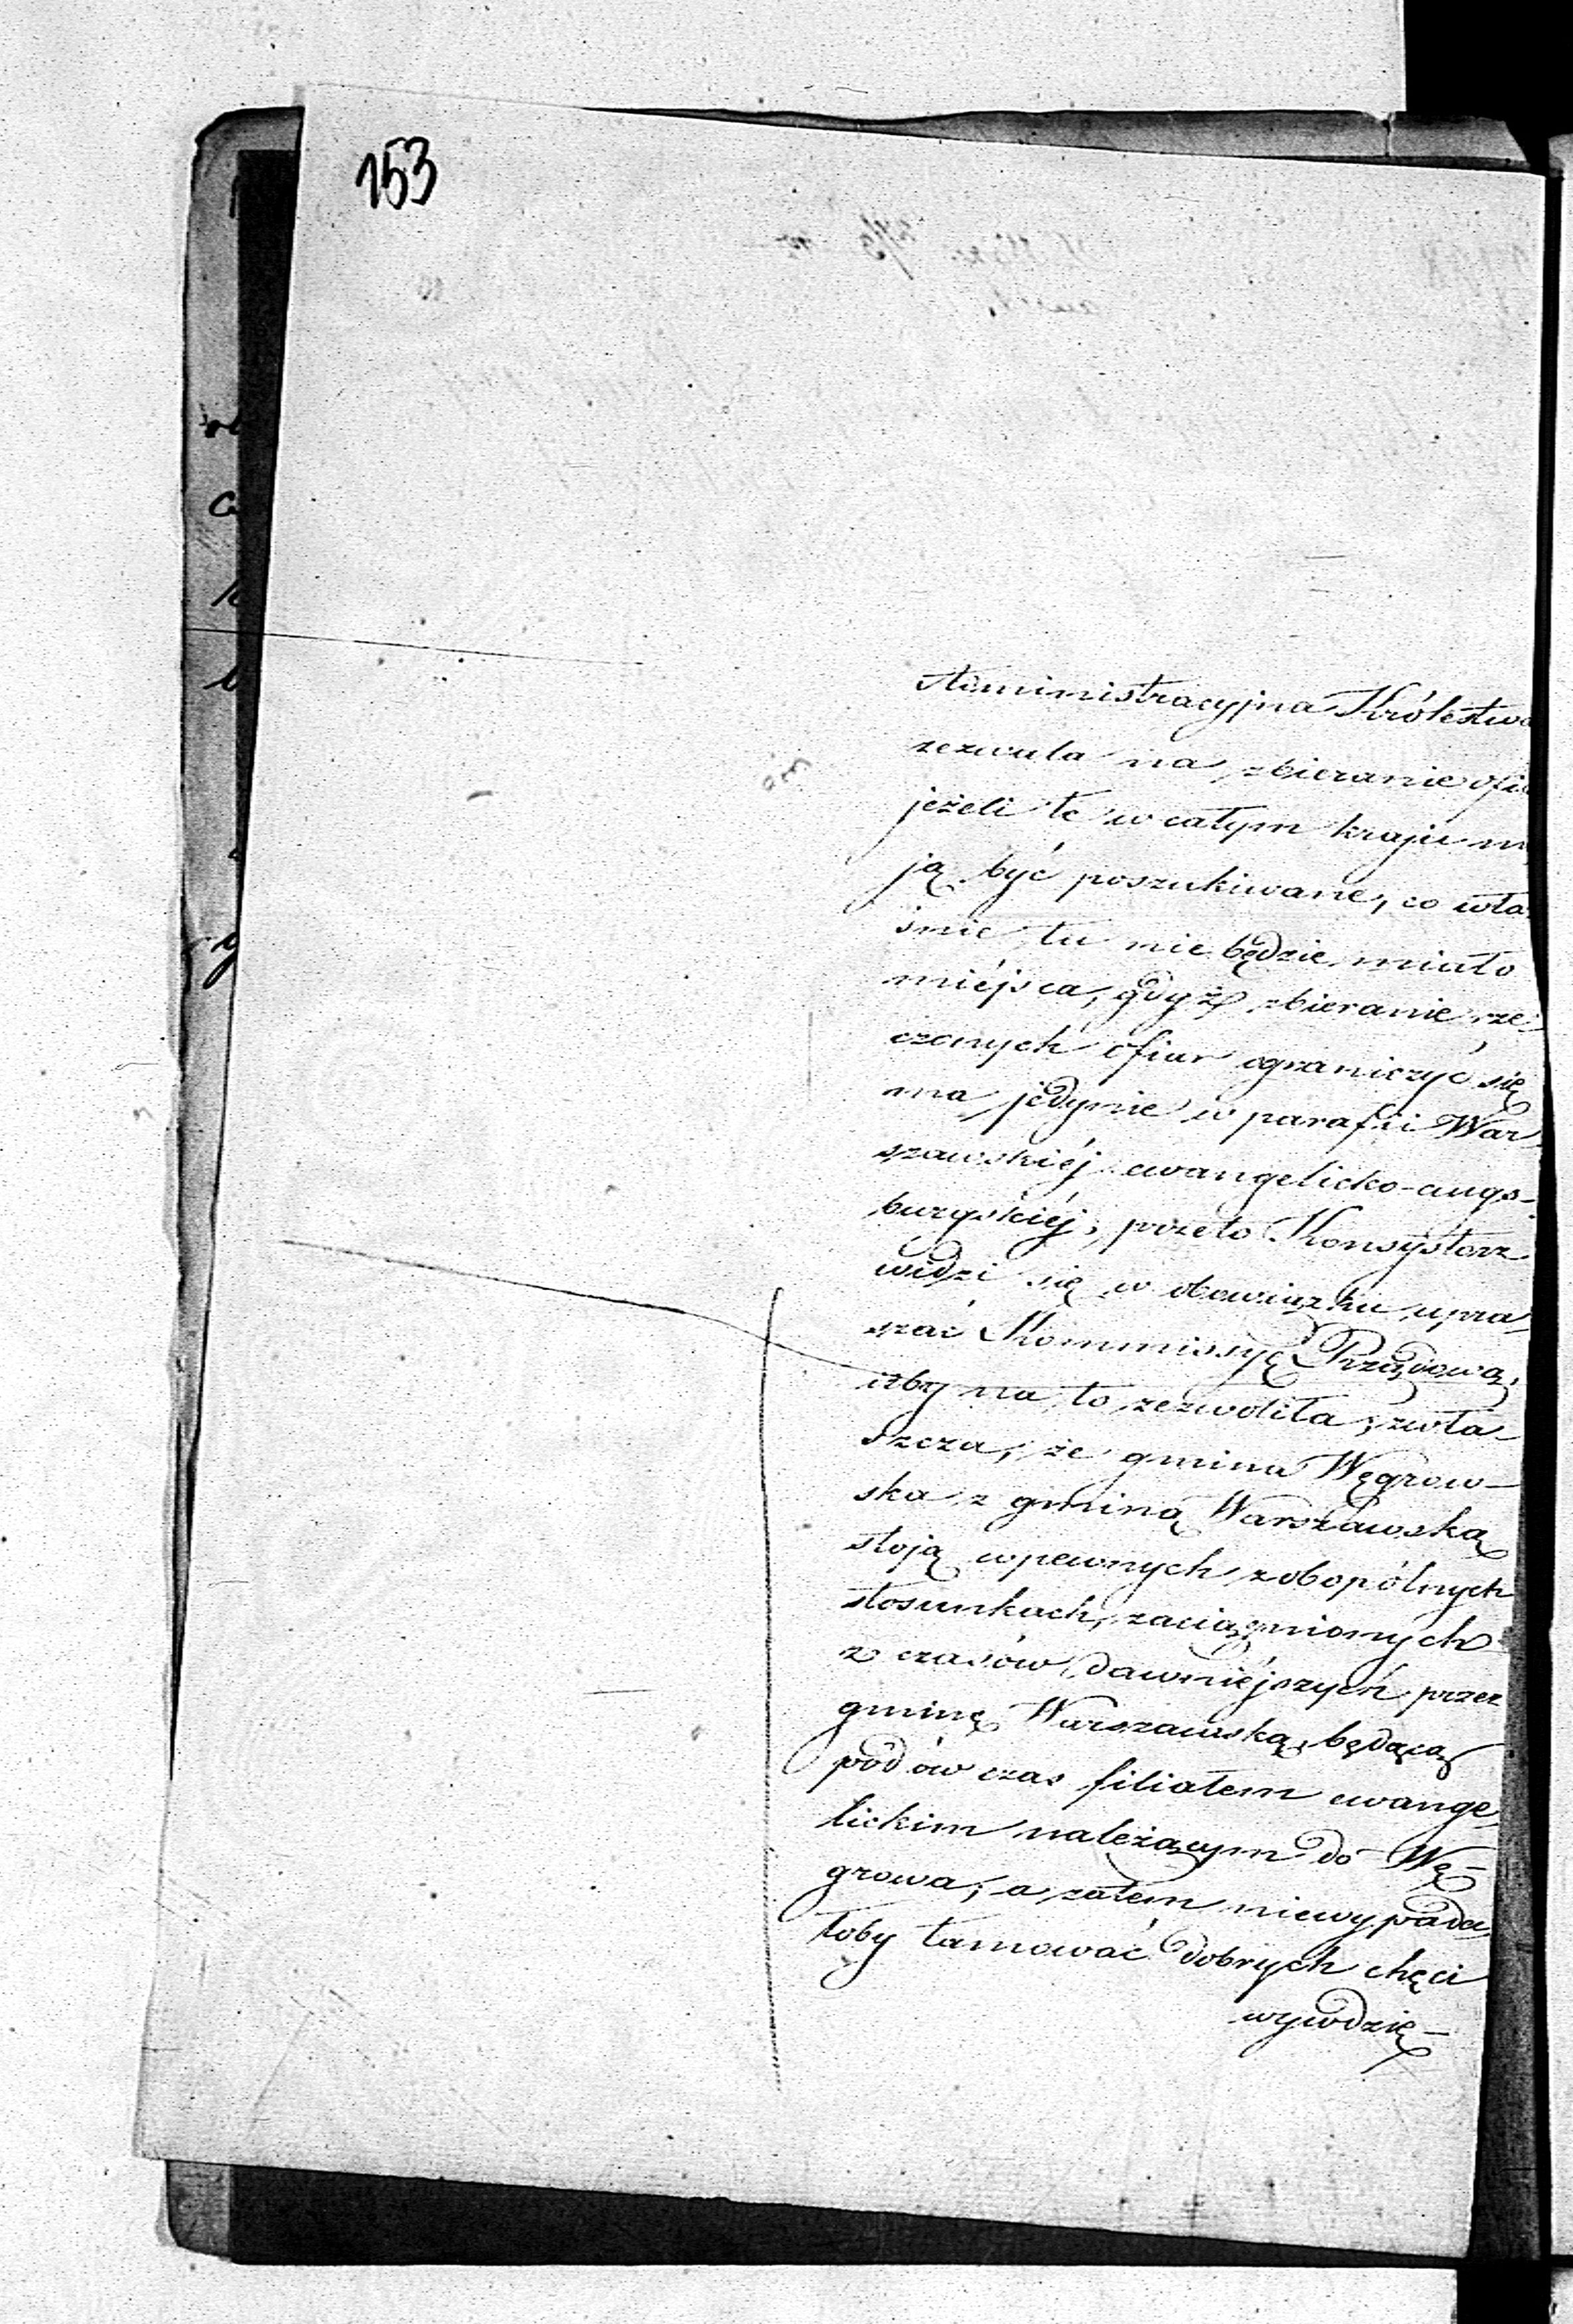 153
Administracyjna Królestwa
zezwala na zbieranie ofia
jeżeli te w całym kraju ma
ją być poszukiwane, co wła
śnie tu nie będzie miało
miéjsca, gdyż zbieranie rze
czonych ofiar ograniczyć się
ma jedynie w parafii War
szawskiéj ewangelicko-augs-
burgskiéj; przeto Konsystorz
widzi się w obowiązku upra
szać Kommissyę Rządową,
iżby na to zezwoliła; zwła-
szcza, że gmina Węgrow-
ska z gminą Warszawską
stoją w pewnych zobopólnych
stosunkach, zaciągnionych
z czasów dawniéjszych przez
gminę Warszawską, będącą
pod ów czas filiałem ewange
lickim należącym do Wę-
growa; a zatem niewypada
łoby tamować dobrych chęci
wywdzię-